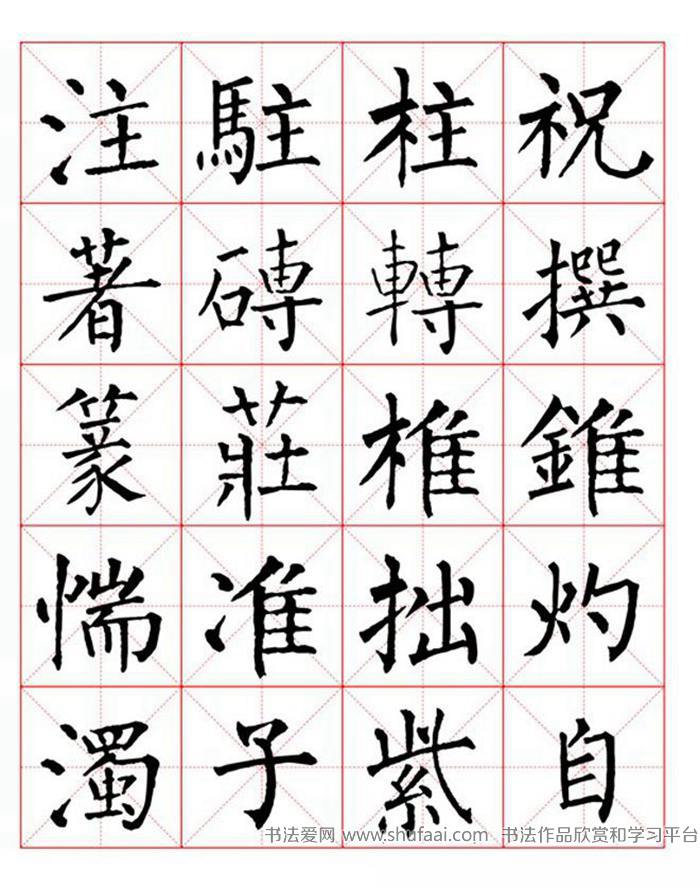 注駐柱祝
著磚轉撰
篆莊椎錐
惴准拙灼
濁子紫自
书法爱网 www.shufaai.com 书法作品欣赏和学习平台